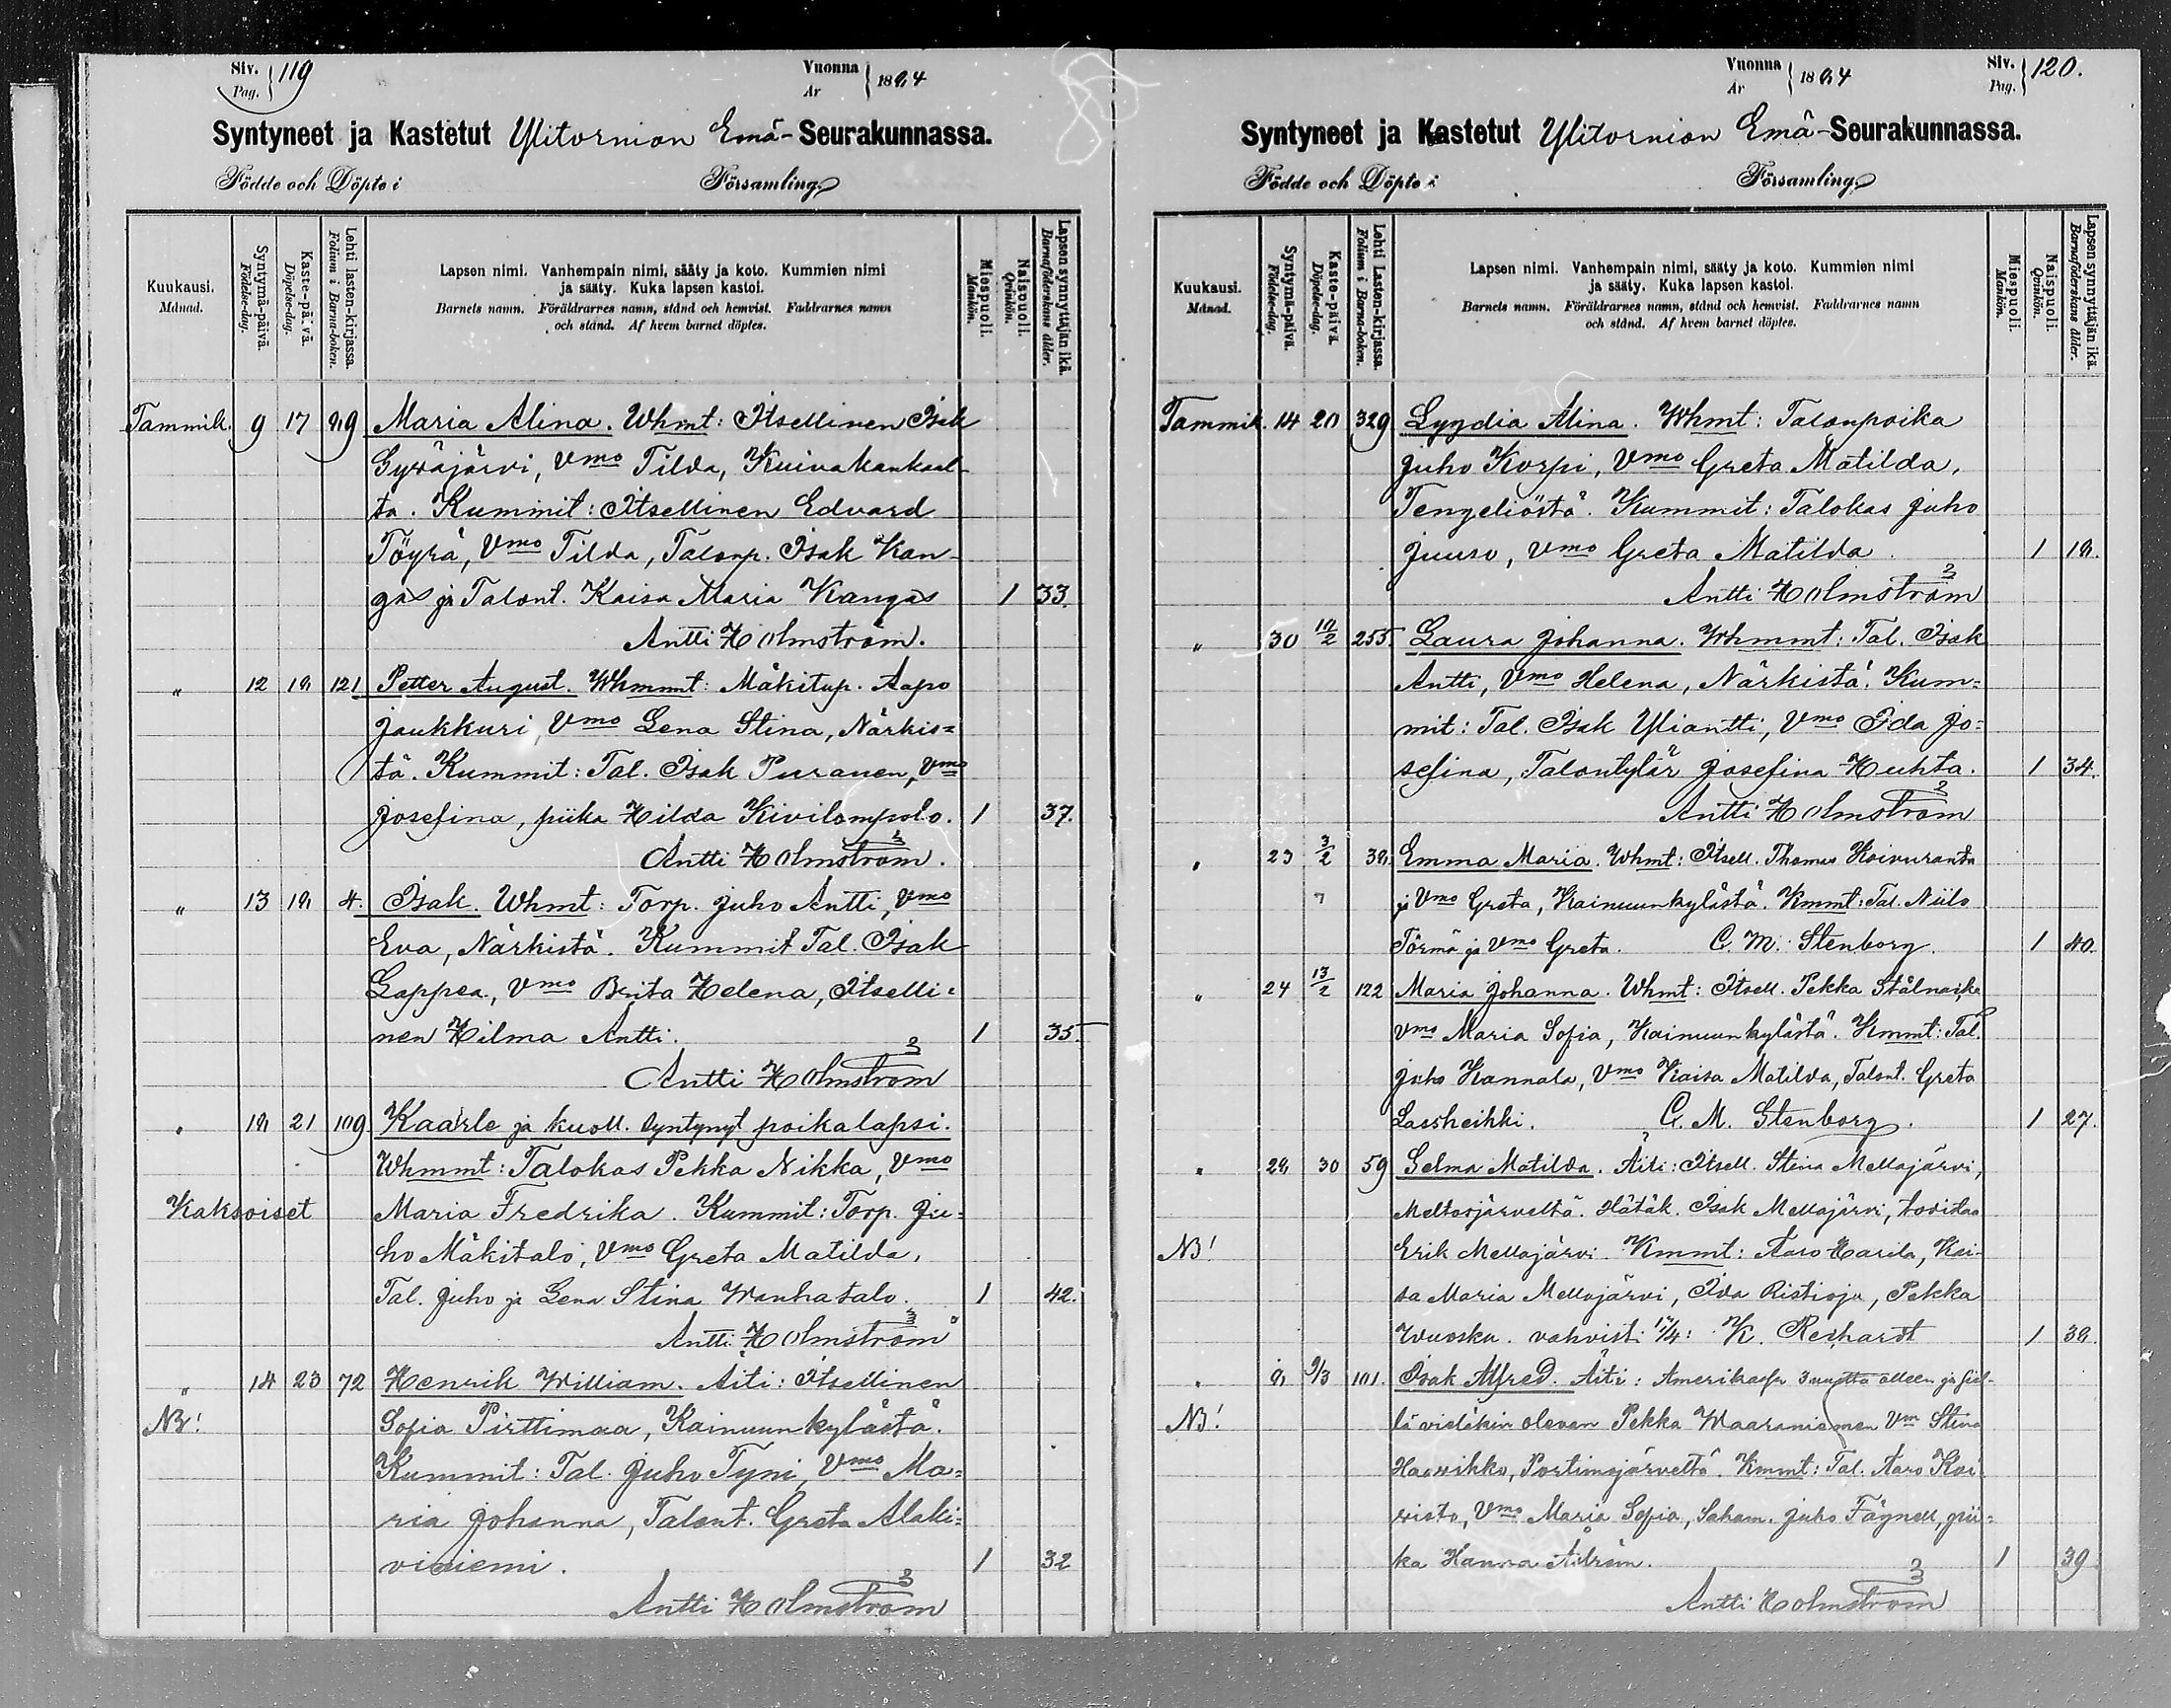 Siv. Pag. 119
Vuonna År 1894
Syntyneet ja Kastetut Ylitornion Emä-Seurakunnassa.
Födde och Döpte i Församling
Kuukausi. Månad.
Syntymä-päivä. Födelse-dag.
Kaste-päivä. Döpelse-dag.
Lehti lasten-kirjassa. Folium i Barna-boken.
Lapsen nimi. Vanhempain nimi, sääty ja koto. Kummien nimi
ja sääty. Kuka lapsen kastoi.
Barnets namn. Föräldrarnes namn, stånd och hemvist. Faddrarnes namn
och stånd. Af hvem barnet döptes.
Miespuoli. Mankön.
Naispuoli. Qvinkön.
Lapsen synnyttäjän ikä. Barnaföderskans ålder.
Tammik. 9 17 99 Maria Alina. Whmt: Itsellinen Isak
Syväjärvi, Vmo Tilda, Kuivakankaal-
ta. Kummit: Itsellinen Edvard
Töyrä, Vmo Tilda, Talonp. Isak Kan-
gas ja Talont. Kaisa Maria Kangas 1 33.
Antti Holmström.
" 12 19 121 Petter August. Whmmt: Mäkitup. Aapo
Jaukkuri, Vmo Lena Stina, Närkis=
tä. Kummit: Tal. Isak Puranen, Vmo
Josefina, piika Hilda Kivilompolo. 1 37.
Antti Holmström.
" 13 19 4. Isak. Whmt: Torp. Juho Antti, Vmo
Eva, Närkistä. Kummit Tal. Isak
Lappea, Vmo Brita Helena, Itselli=
nen Hilma Antti. 1 35.
Antti Holmström
" 19 21 109 Kaarle ja kuoll. syntynyt poikalapsi.
Whmmt: Talokas Pekka Nikka, Vmo
Kaksoiset Maria Fredrika. Kummit: Torp. Ju=
ho Mäkitalo, Vmo Greta Matilda,
Tal. Juho ja Lena Stina Wanhatalo. 1 42.
Antti Holmström
" 14 23 72 Henrik William. Äiti: Itsellinen
NB! Sofia Pirttimaa, Kainuunkylästä.
Kummit: Tal. Juho Tyni, Vmo Ma=
ria Johanna, Talont. Greta Alaki=
viniemi. 1 32
Antti Holmström
Vuonna År 1894
Siv. Pag. 120.
Syntyneet ja Kastetut Ylitornion Emä-Seurakunnassa.
Födde och Döpte i Församling
Kuukausi. Månad.
Syntymä-päivä. Födelse-dag.
Kaste-päivä. Döpelse-dag.
Lehti Lasten-kirjassa. Folium i Barna-boken.
Lapsen nimi. Vanhempain nimi, sääty ja koto. Kummien nimi
ja sääty. Kuka lapsen kastoi.
Barnets namn. Föräldrarnes namn, stånd och hemvist. Faddrarnes namn
och stånd. Af hvem barnet döptes.
Miespuoli. Mankön.
Naispuoli. Qvinkön.
Lapsen synnyttäjän ikä. Barnaföderskans ålder.
Tammik. 14 20 329 Lyydia Alina. Whmt: Talonpoika
Juho Korpi, Vmo Greta Matilda,
Tengeliöstä. Kummit: Talokas Juho
Juuso, Vmo Greta Matilda. 1 19.
Antti Holmström
" 30 10/2 255. Laura Johanna. Whmmt: Tal. Isak
Antti, Vmo Helena, Närkistä. Kum=
mit: Tal. Isak Yliantti, Vmo Ida Jo=
sefina, Talontytär Josefina Huhta. 1 34.
Antti Holmström
" 23 3/2 39. Emma Maria. Whmt: Itsell. Thomas Koivuranta
ja Vmo Greta, Kainuunkylästä. Kmmt: Tal. Niilo
Törmä ja Vmo Greta. C. M. Stenborg. 1 40
" 24 13/2 122 Maria Johanna. Whmt: Itsell. Pekka Stålnacke
Vmo Maria Sofia, Kainuunkylästä. Kmmt: Tal.
Juho Hannala, Vmo Kaisa Matilda, Talont. Greta
Lassheikki. C. M. Stenborg. 1 27.
" 29 30 59 Selma Matilda. Äiti: Itsell. Stina Mellajärvi,
Meltosjärveltä. Hätäk. Isak Mellajärvi, todistaa
NB! Erik Mellajärvi. Kmmt: Aaro Harila, Kai-
sa Maria Mellajärvi, Ida Ristioja, Pekka
Wuosku. vahvist. K. Rechardt 1 39.
" 9 9/3 101. Isak Alfred. Äiti: Amerikassa 3 vuotta olleen ja siel-
NB! lä vieläkin olevan Pekka Waaraniemen Vm Stina
Portimojärveltä. Kmmt: Tal. Aaro Koi
visto, Vmo Maria Sofia, Saham. Juho pii=
ka Hanna 1 39
Antti Holmström